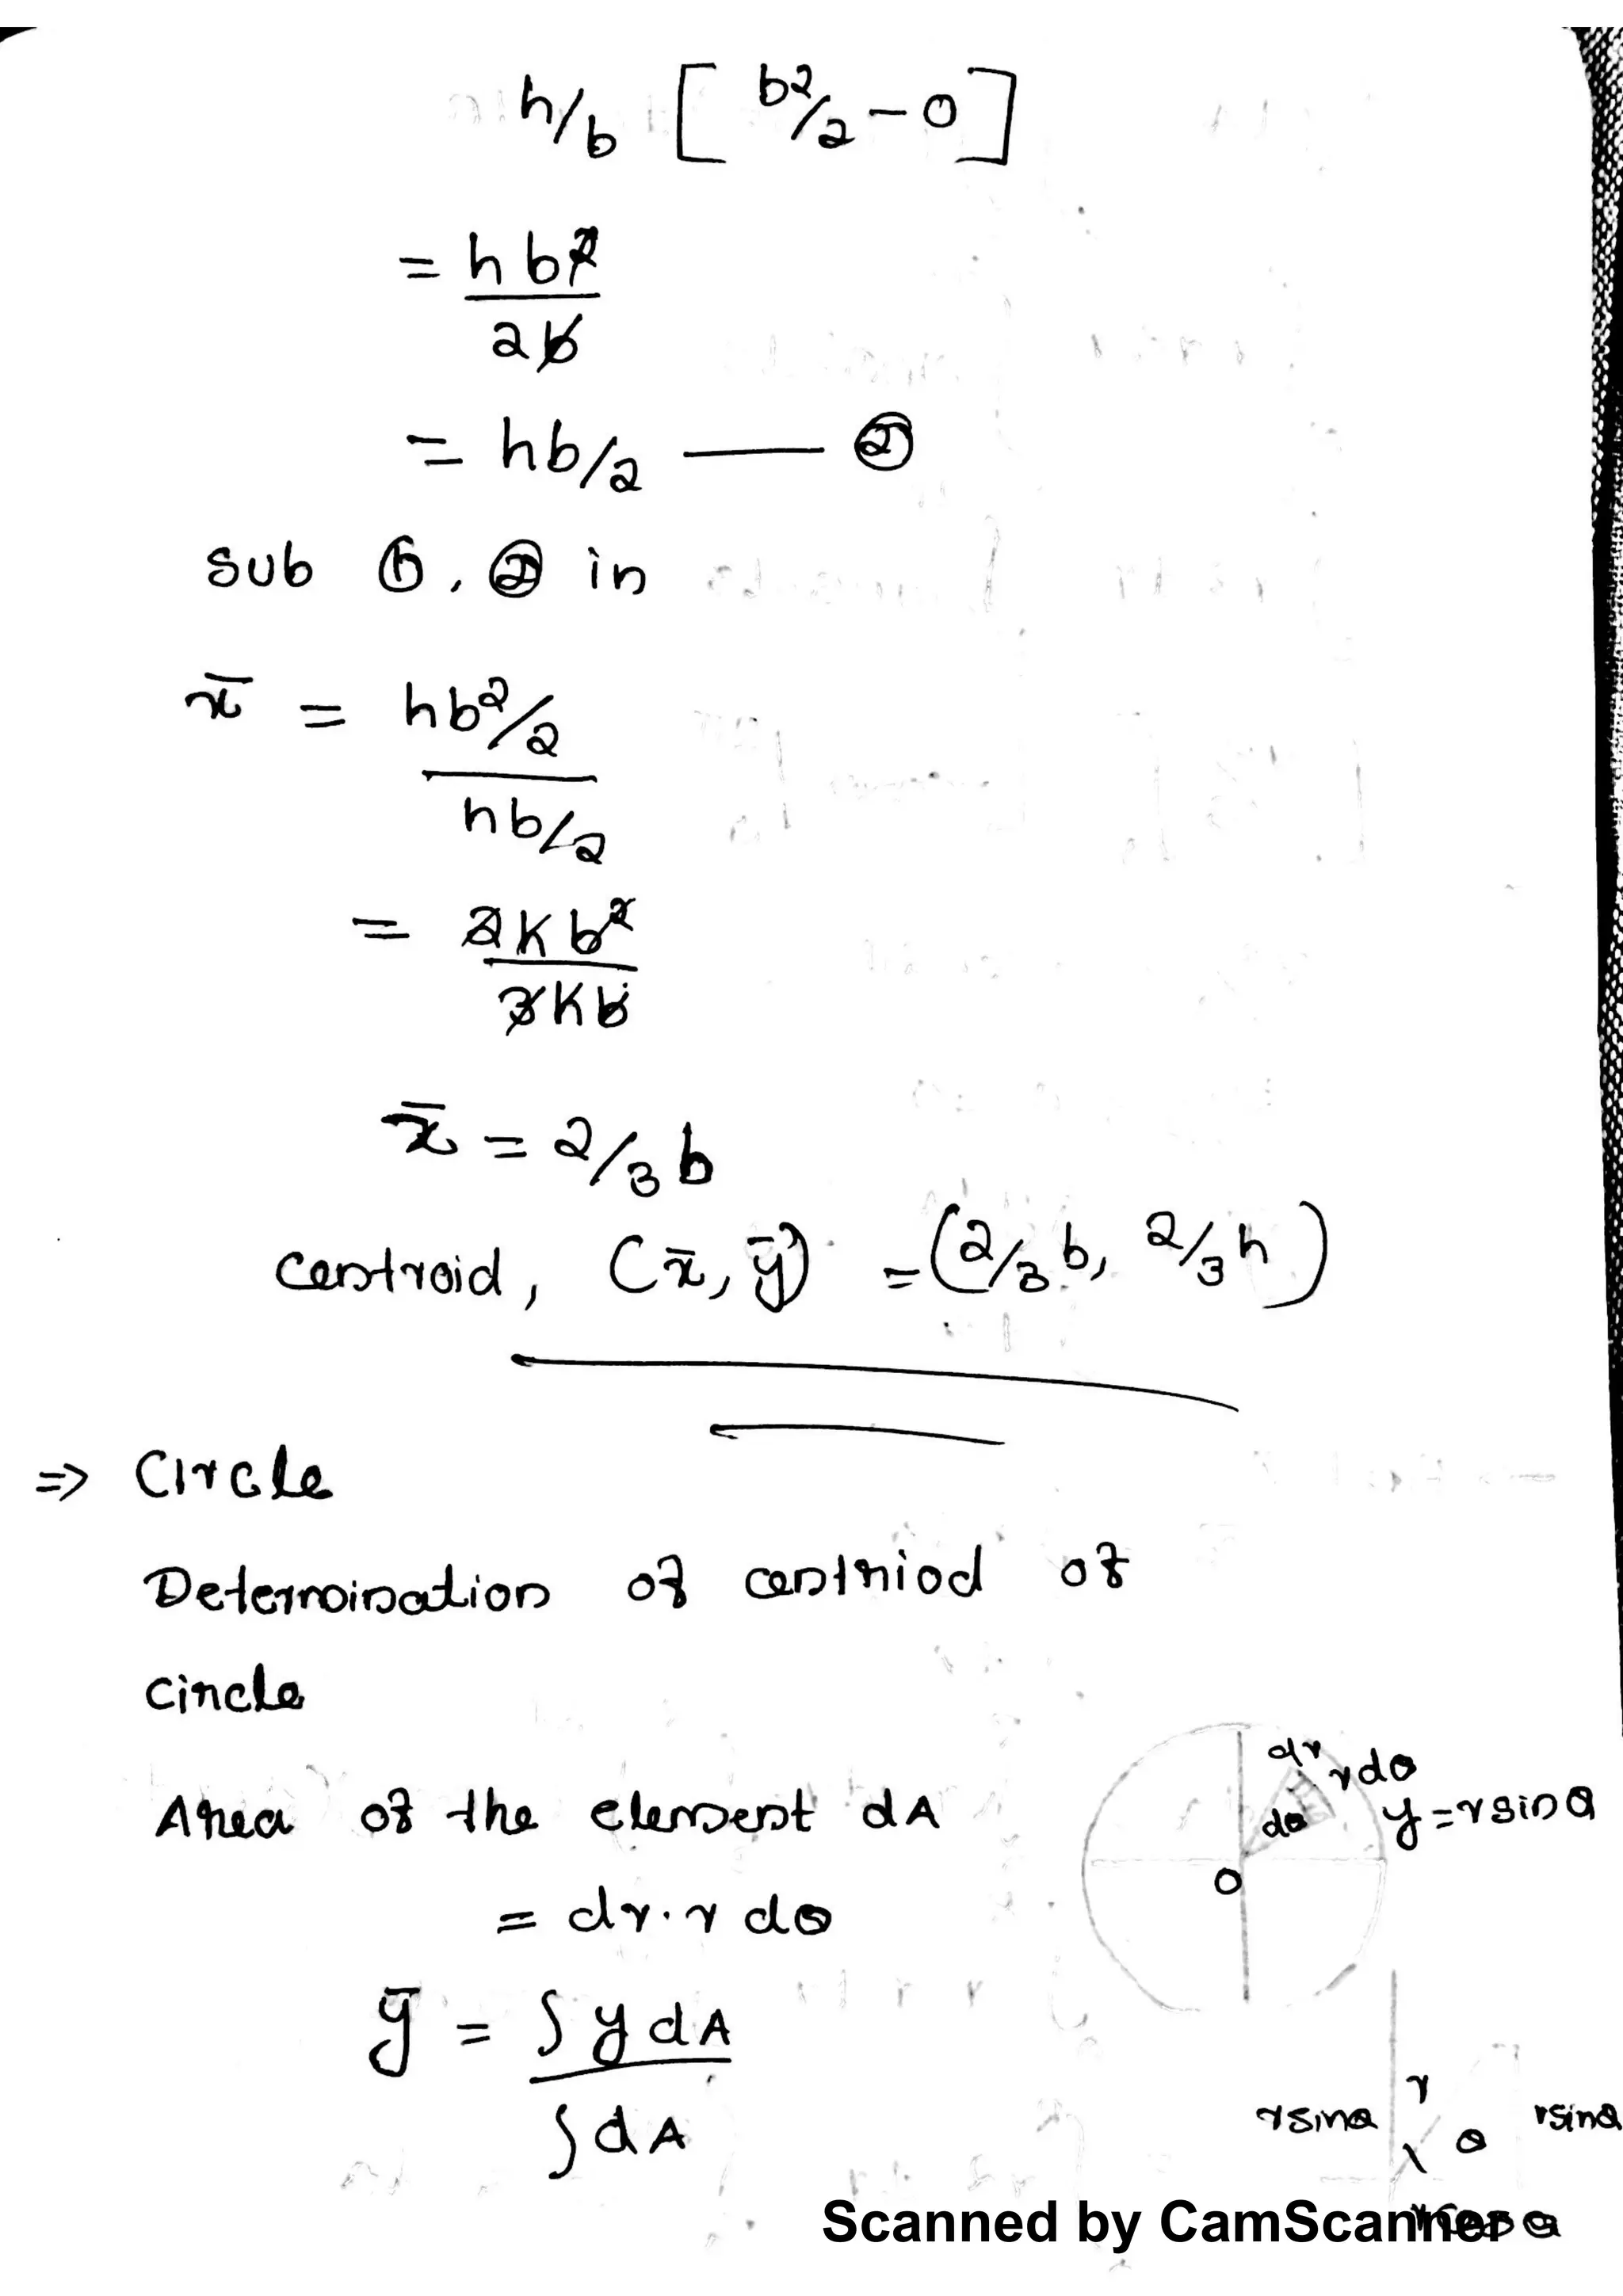 h/b [ b²/2 - 0 ]
= hb²
2b
= hb/2 —— ②
sub ①, ② in
x̄ = hb²/2
hb/2
= 2hb²
3hb
x̄ = 2/3 b
centroid, (x̄, ȳ) = (2/3 b, 2/3 h)
⇒ Circle
Determination of centriod of
circle
Area of the element dA
= dr.r dθ
ȳ = ∫ y dA
∫ dA
dr
r dθ
dθ
y = r sin θ
O
r sin θ
r
θ
r sin θ
r cos θ
Scanned by CamScanner